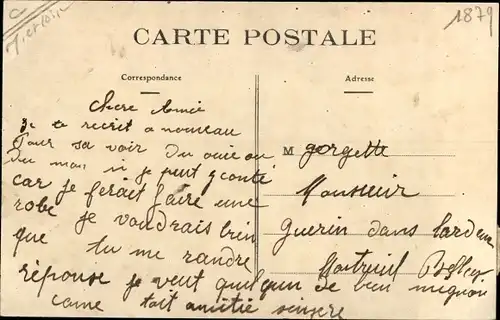 1879
CARTE POSTALE
Correspondance
Adresse
chere Amie
je te recrit a nouveau
Pour sa voir Du ouie ou
Du mon si je peut y conté
car je ferait faire une
robe je voudrais bien
que tu me randre
réponse je veut quelqun de bien mignon
came toit amitié sinsere
M gorgette
Monsieur
Guerin dans
Montreuil